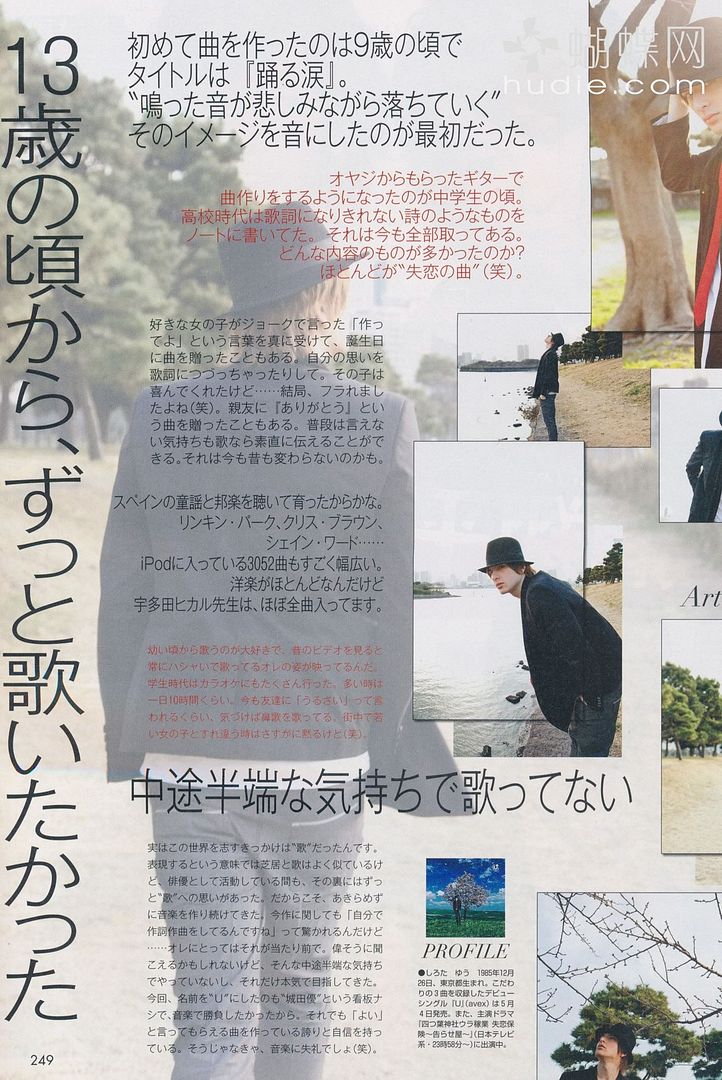 蝴蝶网
hudie.com
13歳の頃から、ずっと歌いたかった
初めて曲を作ったのは9歳の頃で
タイトルは『踊る涙』。
“鳴った音が悲しみながら落ちていく”
そのイメージを音にしたのが最初だった。
オヤジからもらったギターで
曲作りをするようになったのが中学生の頃。
高校時代は歌詞になりきれない詩のようなものを
ノートに書いてた。それは今も全部取ってある。
どんな内容のものが多かったのか?
ほとんどが“失恋の曲”(笑)。
好きな女の子がジョークで言った「作っ
てよ」という言葉を真に受けて、誕生日
に曲を贈ったこともある。自分の思いを
歌詞につづっちゃったりして。その子は
喜んでくれたけど……結局、フラれまし
たよね(笑)。親友に『ありがとう』とい
う曲を贈ったこともある。普段は言えな
い気持ちも歌なら素直に伝えることがで
きる。それは今も昔も変わらないのかも。
スペインの童謡と邦楽を聴いて育ったからかな。
リンキン・パーク、クリス・ブラウン、
シェイン・ワード……
iPodに入っている3052曲もすごく幅広い。
洋楽がほとんどなんだけど
宇多田ヒカル先生は、ほぼ全曲入ってます。
幼い頃から歌うのが大好きで、昔のビデオを見ると
常にハシャいで歌ってるオレの姿が映ってるんだ。
学生時代はカラオケにもたくさん行った。多い時は
一日10時間くらい。今も友達に「うるさい」って言
われるくらい、気づけば鼻歌を歌ってる。街中で若
い女の子とすれ違う時はさすがに黙るけど(笑)。
Art
中途半端な気持ちで歌ってない
実はこの世界を志すきっかけは“歌”だったんです。
表現するという意味では芝居と歌はよく似ているけ
ど、俳優として活動している間も、その裏にはずっ
と“歌”への思いがあった。だからこそ、あきらめず
に音楽を作り続けてきた。今作に関しても「自分で
作詞作曲をしてるんですね」って驚かれるんだけど
……オレにとってはそれが当たり前で。偉そうに聞
こえるかもしれないけど、そんな中途半端な気持ち
でやっていないし、それだけ本気で目指してきた。
今回、名前を“U”にしたのも“城田優”という看板ナ
シで、音楽で勝負したかったから。それでも「よい」
と言ってもらえる曲を作っている誇りと自信を持っ
ている。そうじゃなきゃ、音楽に失礼でしょ(笑)。
PROFILE
●しろた ゆう 1985年12月
26日、東京都生まれ。こだわ
りの3曲を収録したデビュー
シングル『U』(avex)は5月
4日発売。また、主演ドラマ
『四つ葉神社ウラ稼業 失恋保
険〜告らせ屋〜』(日本テレビ
系・23時58分〜)に出演中。
249